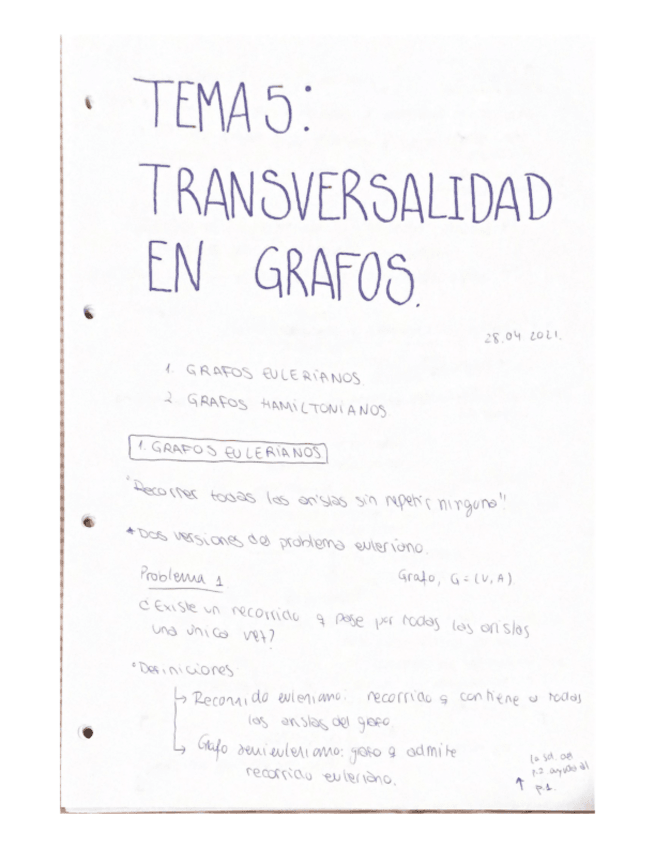 TEMA 5:
TRANSVERSALIDAD
EN GRAFOS.
28.04.2021.
1. GRAFOS EULERIANOS.
2. GRAFOS HAMILTONIANOS.
1. GRAFOS EULERIANOS
"Recorrer todas las aristas sin repetir ninguna".
* Dos versiones del problema euleriano.
Problema 1
Grafo, G = (V, A)
¿Existe un recorrido q pase por todas las aristas
una única vez?
° Definiciones
↳ Recorrido euleriano: recorrido q contiene a todas
las aristas del grafo.
↳ Grafo semieuleriano: grafo q admite
recorrido euleriano.
la sol. del
p.2. ayuda al
↑ p.1.